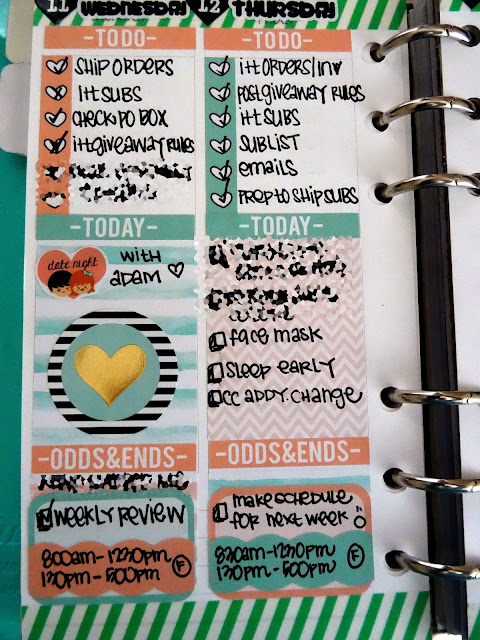 11 WEDNESDAY
-TODO-
SHIP ORDERS
1tt SUBS
CHECK PO BOX
1tt giveaway RULES
-TODAY-
date night
WITH
ADAM
-ODDS&ENDS-
WEEKLY REVIEW
800am-1230pm
130pm-500pm
F
12 THURSDAY
-TODO-
1tt ORDERS/INV
POST giveaway RULES
1tt SUBS
SUB LIST
emails
PREP TO SHIP SUBS
-TODAY-
FACE MASK
SLEEP EARLY
CC ADDY. CHANGE
-ODDS&ENDS-
MAKE SCHEDULE
FOR NEXT WEEK
830am-1230pm
130pm-500pm
F